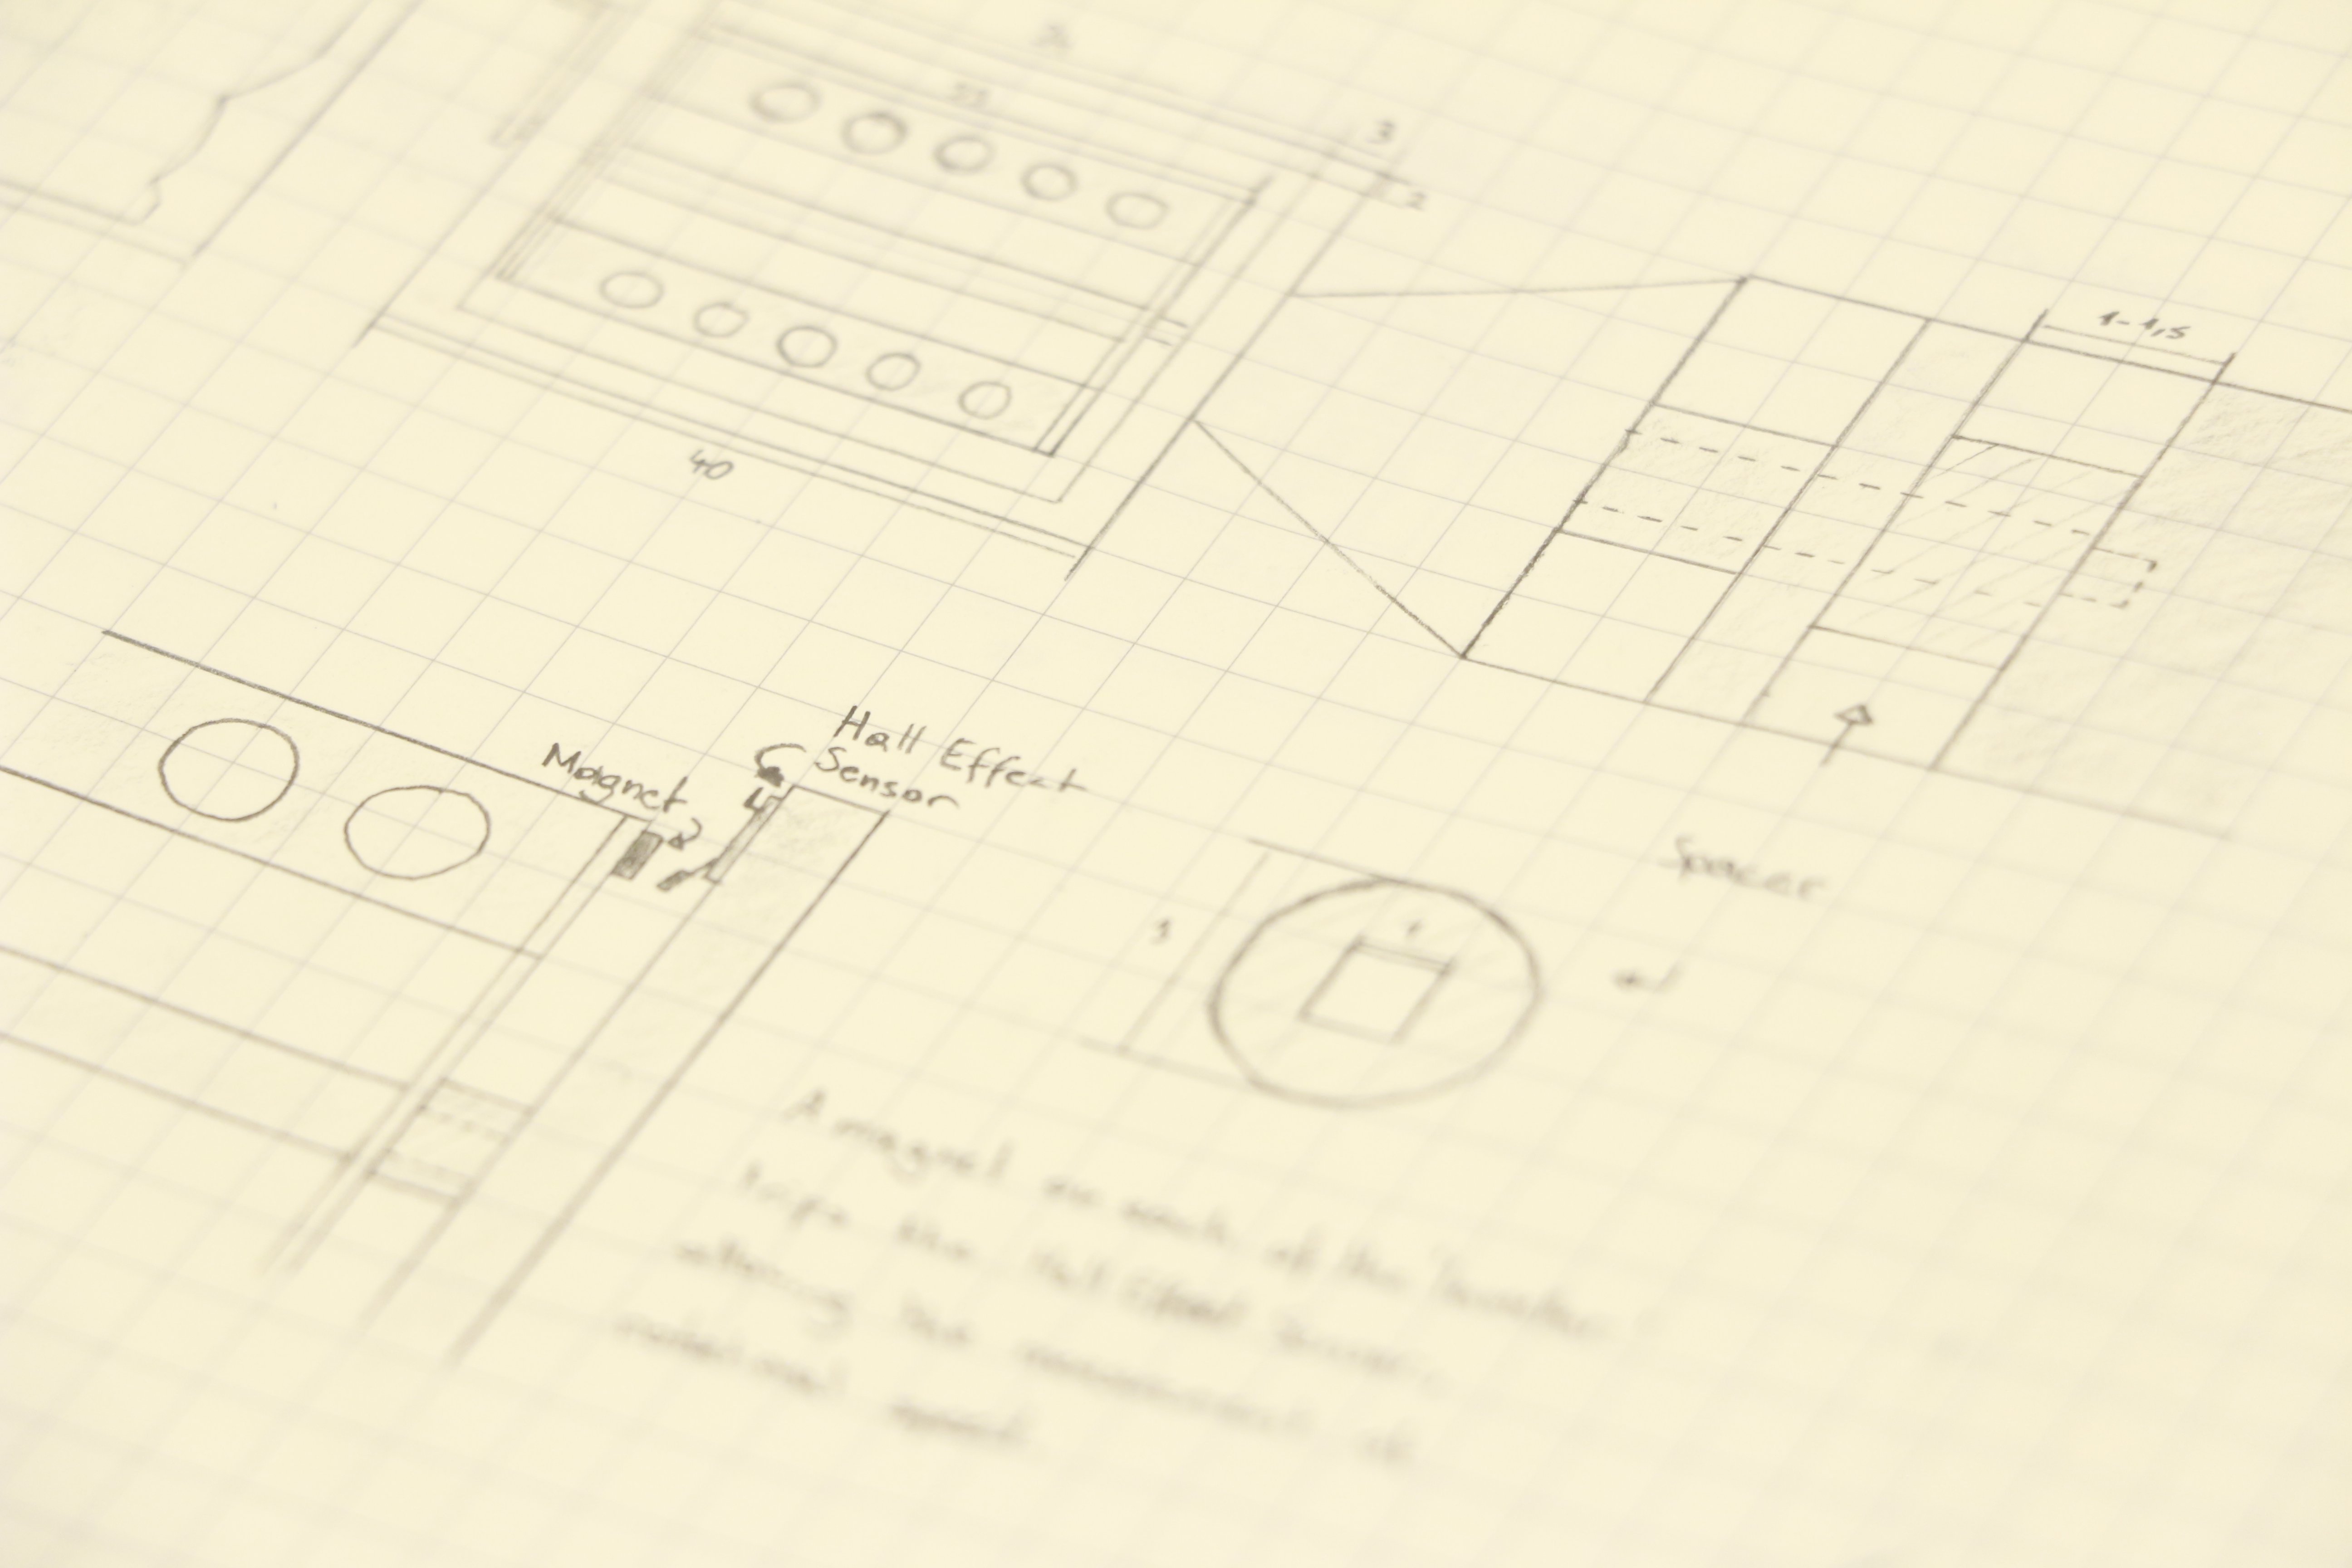 3
2
1-1,5
40
Hall Effect
Magnet
Sensor
Spacer
3
A magnet on each of the
trips the Hall Effect Sensor,
allowing the measurement of
rotational speed